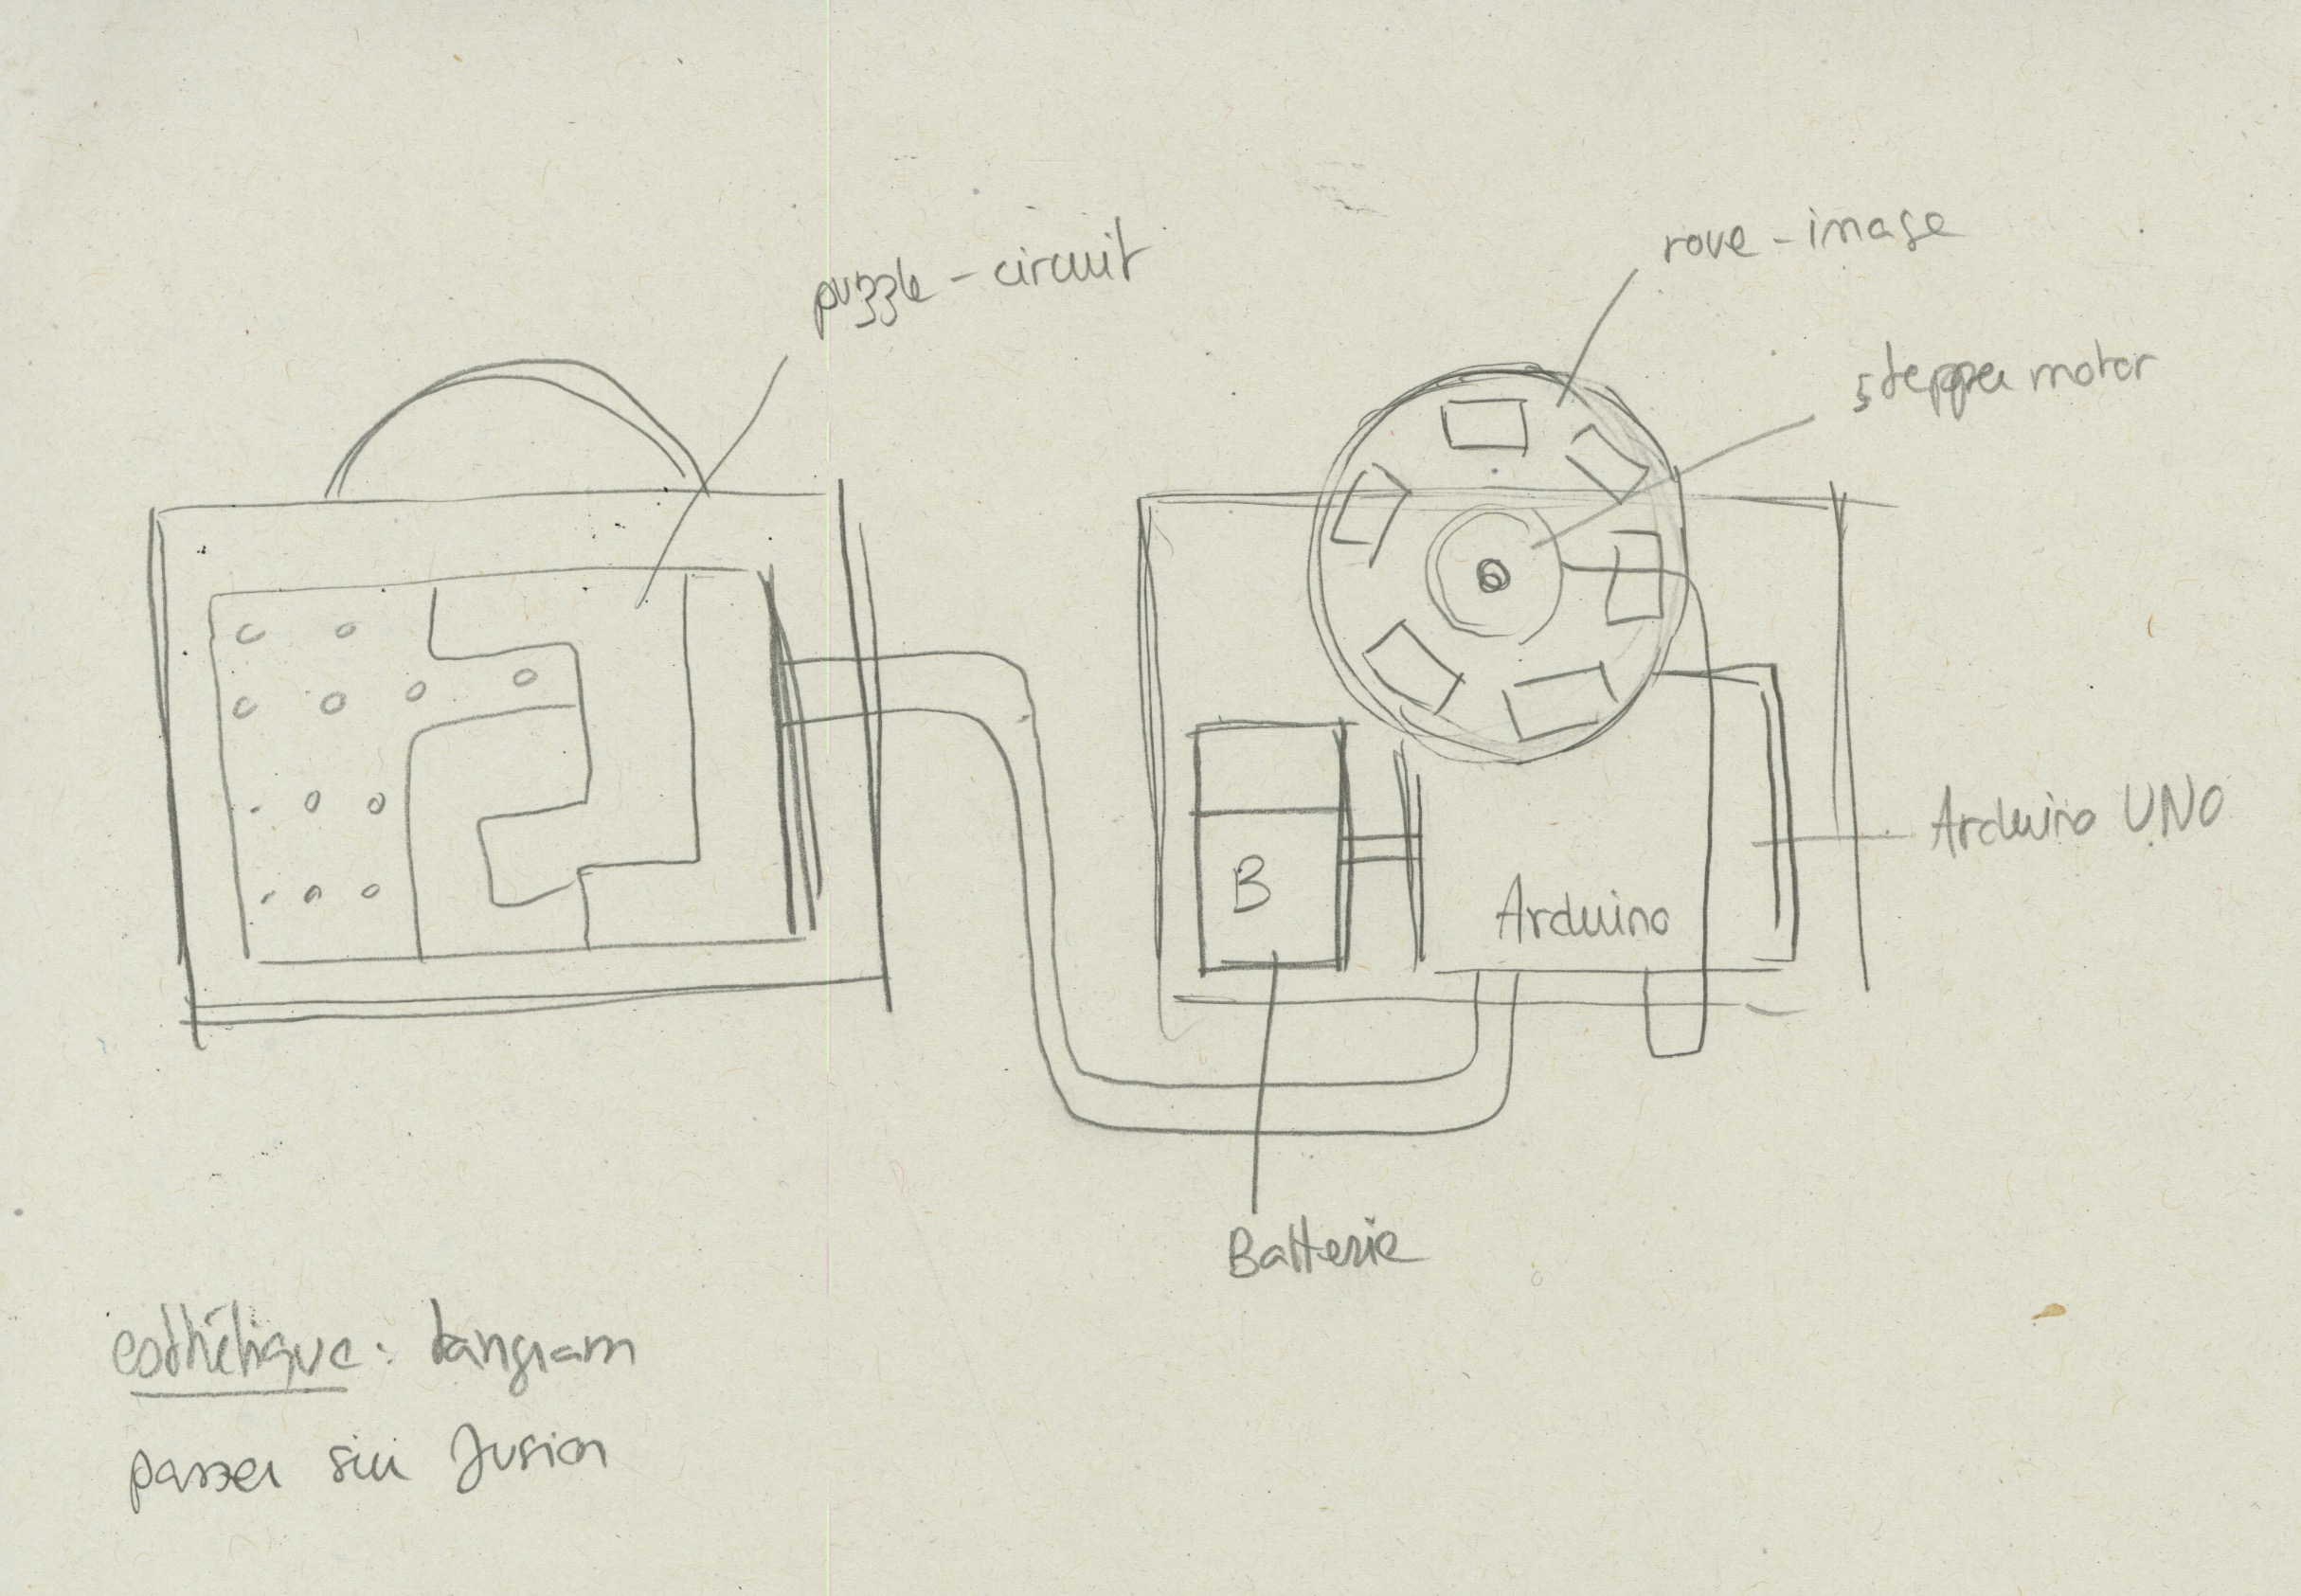 roue - image
puzzle - circuit
stepper motor
Arduino UNO
B
Arduino
Batterie
esthétique: tangram
passer sur fusion